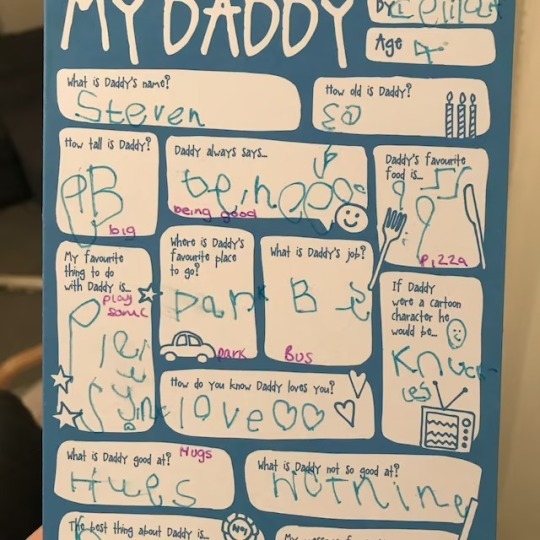 MY DADDY
by
Age 4
What is Daddy's name?
Steven
How old is Daddy?
How tall is Daddy?
big
Daddy always says...
being good
Daddy's favourite
food is...
pizza
My favourite
thing to do
with Daddy is...
play
sonic
Where is Daddy's
favourite place
to go?
park
park
What is Daddy's job?
Bus
If Daddy
were a cartoon
character he
would be...
Knuck
les
How do you know Daddy loves you?
love
What is Daddy good at?
Hugs
Hugs
What is Daddy not so good at?
The best thing about Daddy is...
No1